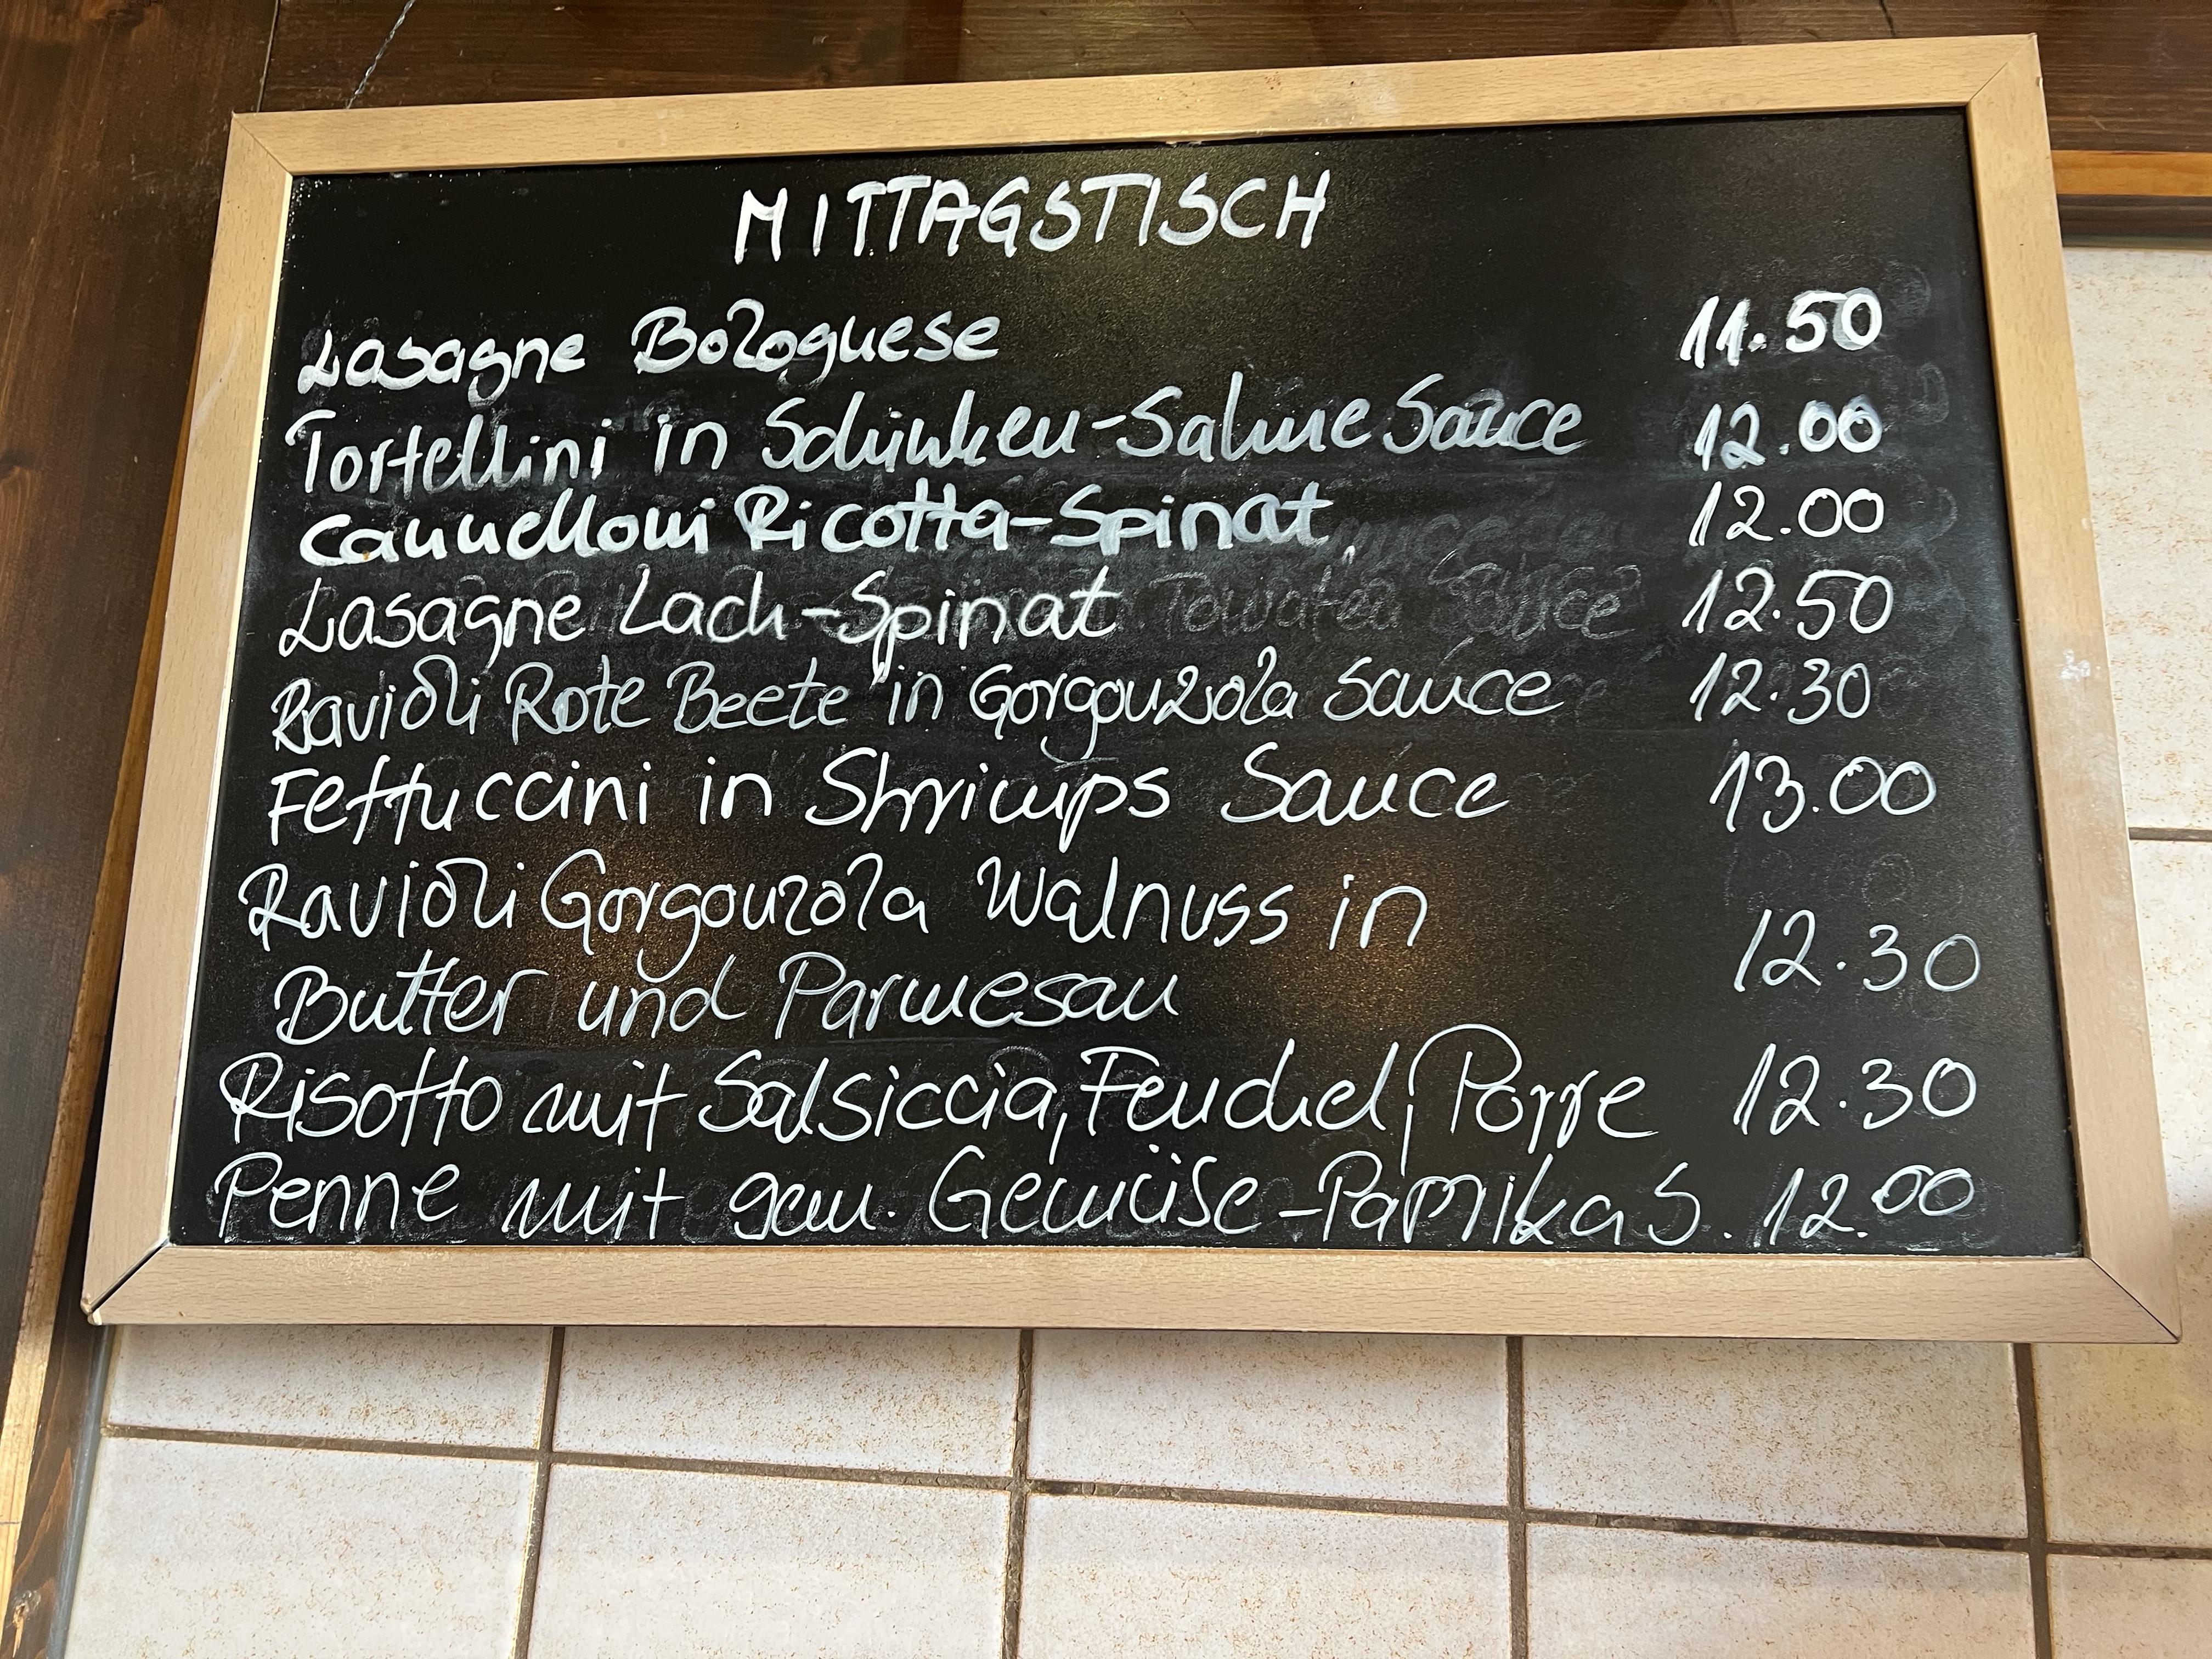 MITTAGSTISCH
Lasagne Bolognese 11.50
Tortellini in Schinken-Sahne Sauce 12.00
Cannelloni Ricotta-Spinat 12.00
Lasagne Lach-Spinat 12.50
Ravioli Rote Beete in Gorgonzola Sauce 12.30
Fettuccini in Shrimps Sauce 13.00
Ravioli Gorgonzola Walnuss in
Butter und Parmesan 12.30
Risotto mit Salsiccia, Fenchel, Porre 12.30
Penne mit gem. Gemüse-Paprika S. 12.00